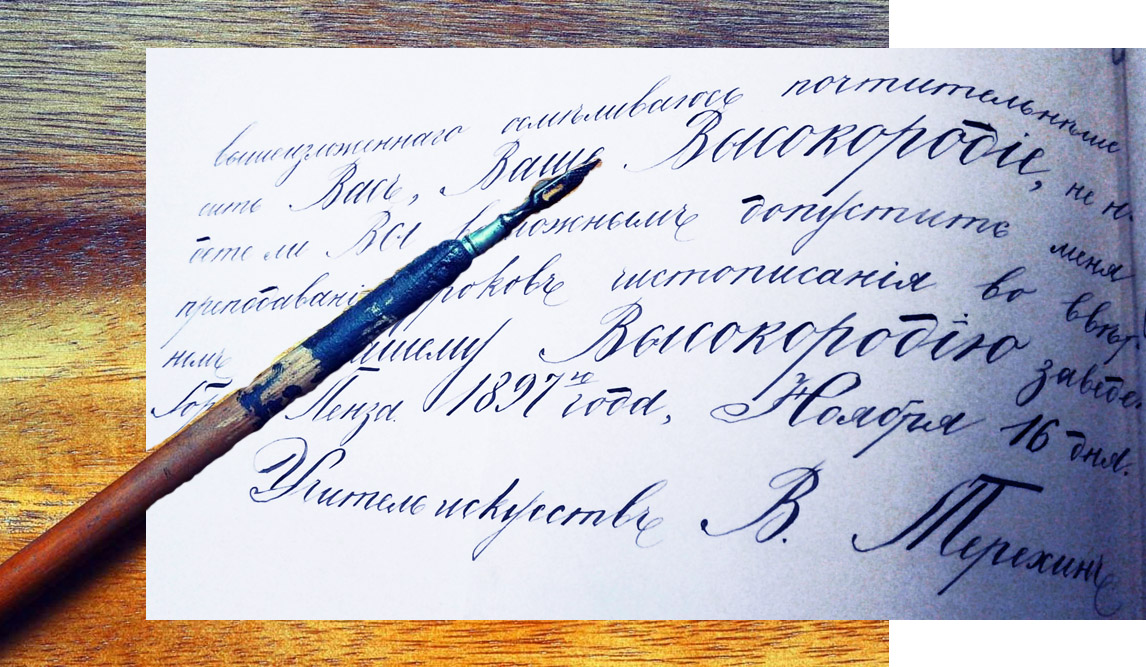 вышеизложеннаго осмѣливаюсь почтительнѣйше
сить Васъ, Ваше Высокородіе, не н
дете ли Воз ложнымъ допустить меня
преподавані роковъ чистописанія во ввѣр
номъ ашему Высокородію заведе
Пенза. 1897 го года, Ноября 16 дня.
Учитель искусствъ В. Терехинъ